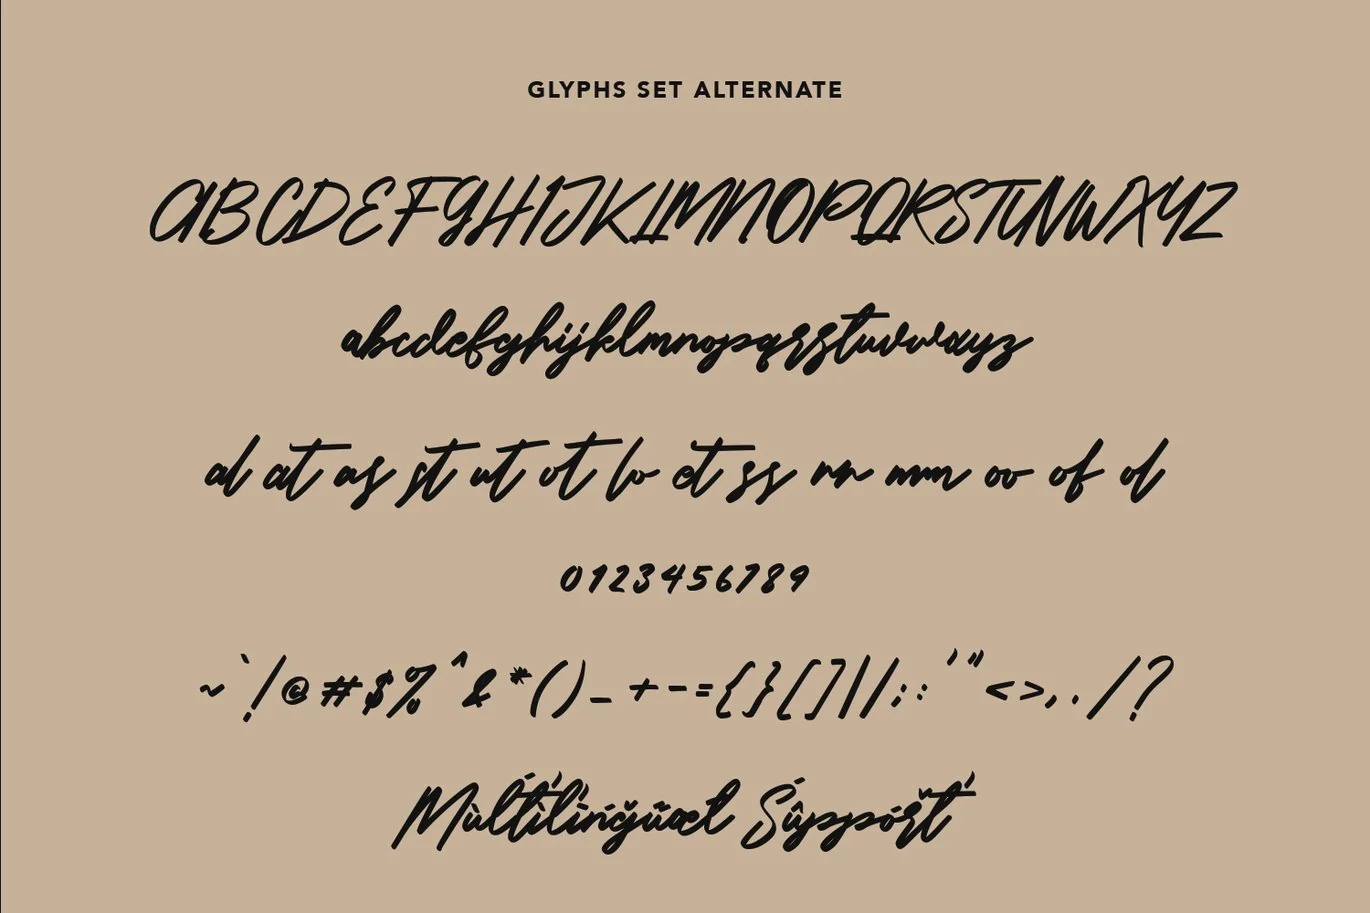 GLYPHS SET ALTERNATE
ABCDEFGHIJKLMNOPQRSTUVWXYZ
abcdefghijklmnopqrsstuvwxyz
al at as st ut ot lo et ss rr mm oo of ol
0123456789
~`!@#$%^&*()_+-={}[]||;:'"<>,./?
Mùltìlìńgŭũœł Śûppórť